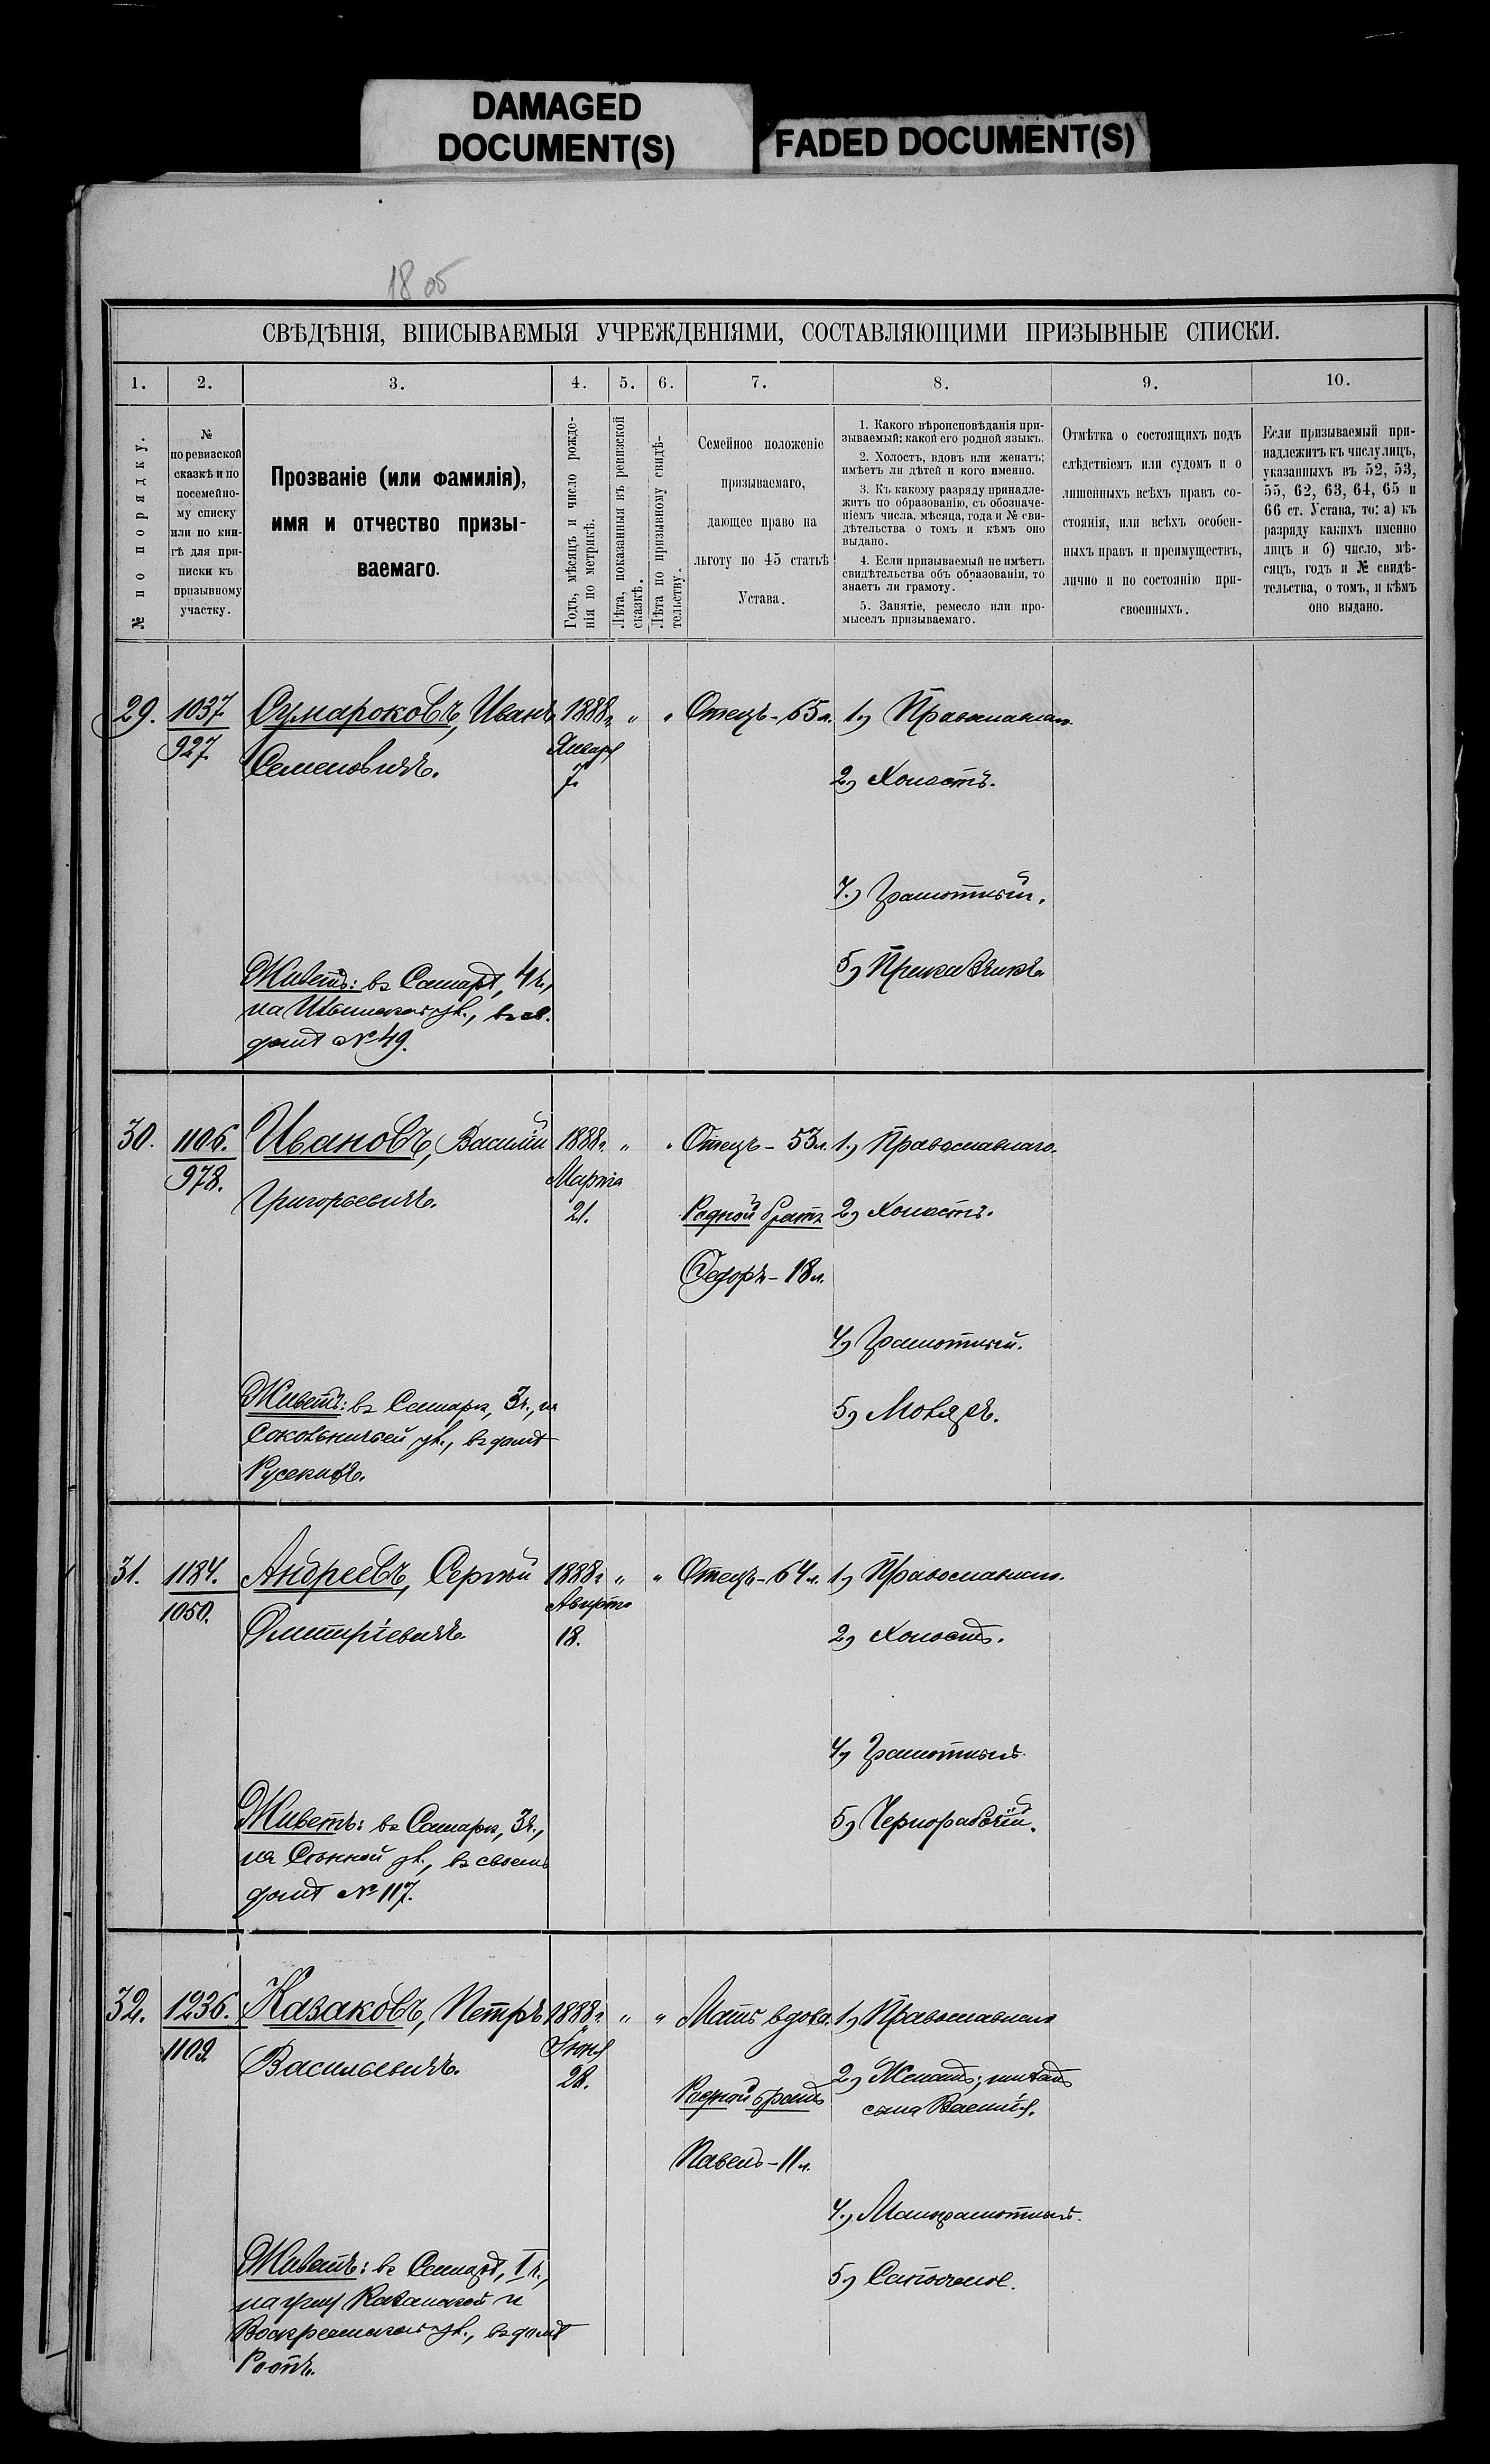 DAMAGED
DOCUMENT(S)
FADED DOCUMENT(S)
18 об
СВѢДѢНІЯ, ВПИСЫВАЕМЫЯ УЧРЕЖДЕНІЯМИ, СОСТАВЛЯЮЩИМИ ПРИЗЫВНЫЕ СПИСКИ.
1. 2. 3. 4. 5. 6. 7. 8. 9. 10.
№ по порядку.
№
по ревизской
сказкѣ и по
посемейно-
му списку
или по кни-
гѣ для при-
писки къ
призывному
участку.
Прозваніе (или фамилія),
имя и отчество призы-
ваемаго.
Годъ, мѣсяцъ и число рожде-
нія по метрикѣ.
Лѣта, показанныя въ ревизской
сказкѣ.
Лѣта по призывному свидѣ-
тельству.
Семейное положеніе
призываемаго,
дающее право на
льготу по 45 статьѣ
Устава.
1. Какого вѣроисповѣданія при-
зываемый; какой его родной языкъ.
2. Холостъ, вдовъ или женатъ;
имѣетъ ли дѣтей и кого именно.
3. Къ какому разряду принадле-
житъ по образованію, съ обозначе-
ніемъ числа, мѣсяца, года и № сви-
дѣтельства о томъ и кѣмъ оно
выдано.
4. Если призываемый не имѣетъ
свидѣтельства объ образованіи, то
знаетъ ли грамоту.
5. Занятіе, ремесло или про-
мыселъ призываемаго.
Отмѣтка о состоящихъ подъ
слѣдствіемъ или судомъ и о
лишенныхъ всѣхъ правъ со-
стоянія, или всѣхъ особен-
ныхъ правъ и преимуществъ,
лично и по состоянію при-
своенныхъ.
Если призываемый при-
надлежитъ къ числу лицъ,
указанныхъ въ 52, 53,
55, 62, 63, 64, 65 и
66 ст. Устава, то: а) къ
разряду какихъ именно
лицъ и б) число, мѣ-
сяцъ, годъ и № свидѣ-
тельства, о томъ, и кѣмъ
оно выдано.
29. 1037. Сумароковъ, Иванъ 1888г. " " Отецъ - 65 л. 1.) Православнаго.
927. Семеновичъ. Января
7. 2) Холостъ.
4.) Грамотный.
5) Прикащикъ.
Живетъ: въ Самарѣ, 4 ч.,
на Ильинской ул., въ св.
домѣ № 49.
30. 1106. Ивановъ, Василій 1888г. " " Отецъ - 53 л. 1.) Православнаго.
978. Григорьевичъ. Марта
21. Родной братъ 2) Холостъ.
Федоръ - 18 л.
4) Грамотный.
5) Маляръ.
Живетъ: въ Самарѣ, 3 ч., на
Сокольничьей ул., въ домѣ
31. 1184. Андреевъ, Сергѣй 1888г. " " Отецъ - 64 л. 1.) Православнаго.
1050. Дмитріевичъ. Августа
18. 2) Холостъ.
4) Грамотный.
5) Чернорабочій.
Живетъ: въ Самарѣ, 3 ч.,
на Сѣнной ул., въ своемъ
домѣ № 117.
32. 1236. Казаковъ, Петръ 1888г. " " Мать вдова. 1.) Православнаго
1109. Васильевичъ. Іюня
28. Родной братъ 2) Женатъ; имѣетъ
сына Василія.
Павелъ - 11 л.
4.) Малограмотный.
5) Сапожникъ.
Живетъ: въ Самарѣ, I ч.,
на углу Казанской и
Воскресенской ул., въ домѣ